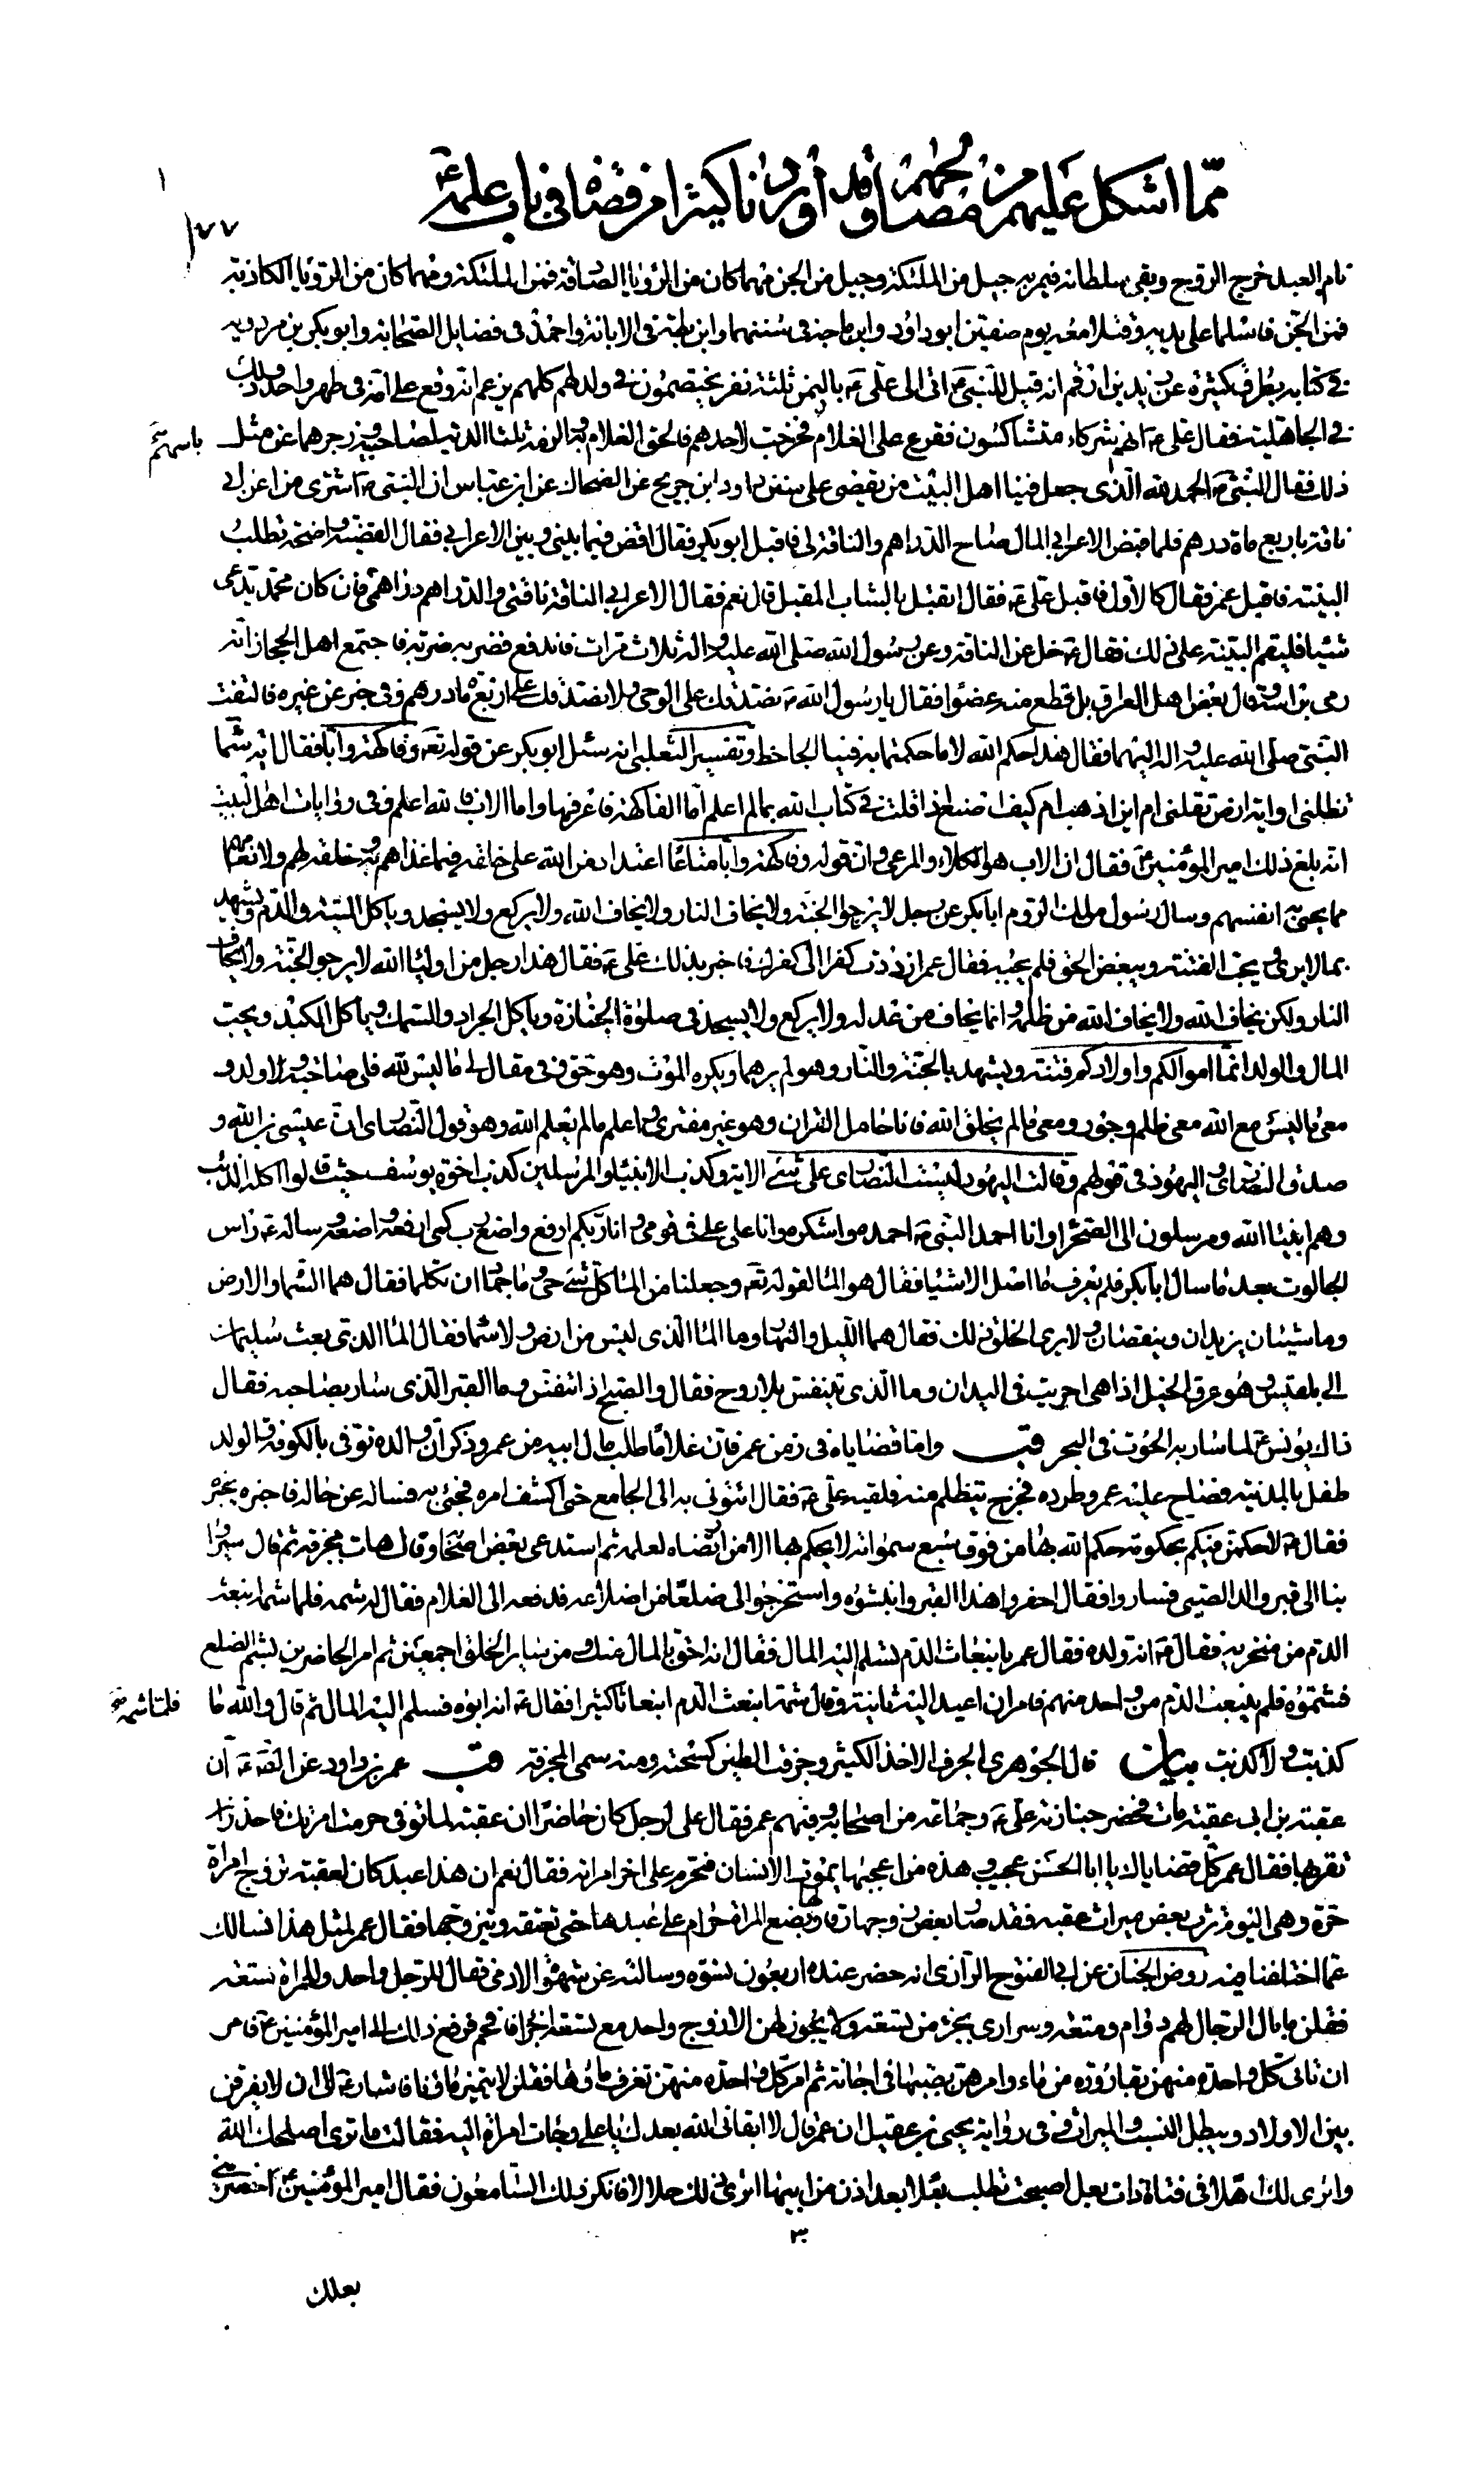 ممّا اشكل عليهم من مصالحهم وقد أوردنا كثيرا من قضاه في باب علمه ع
١٧٧
نام العبد خرج الروح وبقى سلطانه فيمر به جيل من الملئكة وجيل من الجن فمهما كان من الرؤيا الصادقة فمن الملئكة ومهما كان من الرؤيا الكاذبة
فمن الجن فاسلما على يديه وقتلا معه يوم صفين ابو داود وابن ماجة في سننهما وابن بطة في الابانة واحمد في فضايل الصحابة وابو بكر بن مردويه
في كتابه بطرق كثيرة عن زيد بن ارقم انه قيل للنبي ص اتى الى علي ع باليمن ثلثة نفر يختصمون في ولد لهم كلهم يزعم انه وقع على امه في طهر واحد وذلك
في الجاهلية فقال علي ع انهم شركاء متشاكسون فقرع على الغلام فخرجت لاحدهم فالحق الغلام به والزمه ثلثا الدية لصاحبيه وزجرهما عن مثل
باسمهم خ
ذلك فقال النبي ص الحمد لله الذي جعل فينا اهل البيت من يقضي على سنن داود ابن جريح عن الضحاك عن ابن عباس ان النبي ص اشترى من اعرابي
ناقة باربع ماة درهم فلما قبض الاعرابي المال صاح الدراهم والناقة لي فاقبل ابو بكر فقال اقض فيما بيني وبين الاعرابي فقال القضية واضحة تطلب
البينة فاقبل عمر فقال كالاول فاقبل علي ع فقال اتقبل بالشاب المقبل قال نعم فقال الاعرابي الناقة ناقتي والدراهم دراهمي فان كان محمد يدعي
شيئا فليقم البينة على ذلك فقال ع خل عن الناقة وعن رسول الله صلى الله عليه واله ثلاث مرات فاندفع فضربه ضربة فاجتمع اهل الحجاز انه
رمى براسه وقال بعض اهل العراق بل قطع منه عضوا فقال يا رسول الله ص نصدقك على الوحي ولا نصدقك على اربع مائة درهم وفي خبر عن غيره فالتفت
النبي صلى الله عليه واله اليهما فقال هذا حكم الله لا ما حكمتما به فتيا الجاحظ وتفسير الثعلبي انه سئل ابو بكر عن قوله تع وفاكهة وابا فقال اية سما
تظلني او اية ارض تقلني ام اين اذهب ام كيف اصنع اذا قلت في كتاب الله بما لم اعلم اما الفاكهة فاعرفها واما الاب فالله اعلم وفي روايات اهل البيت
انه بلغ ذلك امير المؤمنين ع فقال ان الاب هو الكلاء والمرعى وان قوله وفاكهة وابا متاعا اعتداد من الله على خلقه فيما غذاهم به وخلقه لهم ولانعامهم
مما يحيى به انفسهم وسال رسول ملك الروم ابا بكر عن رجل لا يرجو الجنة ولا يخاف النار ولا يخاف الله ولا يركع ولا يسجد وياكل الميتة والدم ويشهد
بما لا يرى ويحب الفتنة ويبغض الحق فلم يجبه فقال عمر ازددت كفرا الى كفرك فاخبر بذلك علي ع فقال هذا رجل من اولياء الله لا يرجو الجنة ولا يخاف
النار ولكن يخاف الله ولا يخاف الله من ظلمه وانما يخاف من عدله ولا يركع ولا يسجد في صلوة الجنازة وياكل الجراد والسمك وياكل الكبد ويحب
المال والولد انما اموالكم واولادكم فتنة ويشهد بالجنة والنار وهو لم يرهما ويكره الموت وهو حق وفي مقال لي ما ليس لله فلي صاحبة وولد و
معي ما ليس مع الله معي ظلم وجور ومعي ما لم يخلق الله فانا حامل القران وهو غير مفترى واعلم ما لم يعلم الله وهو قول النصارى ان عيسى بن الله و
صدق النصارى واليهود في قولهم وقالت اليهود ليست النصارى على شيء الاية وكذب الانبياء والمرسلين كذب اخوة يوسف حيث قالوا اكله الذئب
وهم انبياء الله ومرسلون الى الصحراء وانا احمد النبي ص احمده واشكره وانا علي علي في قومي وانا ربكم ارفع واضع رب كمي ارفعه واضعه وساله ع راس
الجالوت بعد ما سال ابا بكر فلم يعرف ما اصل الاشياء فقال هو الماء لقوله تع وجعلنا من الماء كل شيء حي وما جمادان تكلما فقال هما السماء والارض
وما شيئان يزيدان وينقصان ولا يرى الخلق ذلك فقال هما الليل والنهار وما الماء الذي ليس من ارض ولا سماء فقال الماء الذي بعث سليمان
الى بلقيس وهو عرق الخيل اذا هي اجريت في الميدان وما الذي يتنفس بلا روح فقال والصبح اذا تنفس وما القبر الذي سار بصاحبه فقال
ذاك يونس ع لما سار به الحوت في البحر قب واما قضاياه في زمن عمر فان غلاما طلب مال ابيه من عمر وذكر ان والده توفي بالكوفة والولد
طفل بالمدينة فصاح عليه عمر وطرده فخرج يتظلم منه فلقيه علي ع فقال ائتوني به الى الجامع حتى اكشف امره فجيئ به فساله عن حاله فاخبره بخبره
فقال ع لاحكمن فيكم بحكومة حكم الله بها من فوق سبع سمواته لا يحكم بها الا من ارتضاه لعلمه ثم استدعى بعض اصحابه وقال هات مجرفة ثم قال سيروا
بنا الى قبر والد الصبي فساروا فقال احفروا هذا القبر وانبشوه واستخرجوا لي ضلعا من اضلاعه فدفعه الى الغلام فقال له شمه فلما شمه انبعث
الدم من منخريه فقال ع انه ولده فقال عمر بانبعاث الدم تسلم اليه المال فقال انه احق بالمال منك ومن ساير الخلق اجمعين ثم امر الحاضرين بشم الضلع
فشموه فلم ينبعث الدم من واحد منهم فامر ان اعيد اليه ثانية وقال شمه انبعث الدم انبعاثا كثيرا فقال ع انه ابوه فسلم اليه المال ثم قال والله ما
فلما شمه خ
كذبت ولا كذبت بيان قال الجوهري الجرف الاخذ الكثير وجرفت الطين كسحته ومنه سمي المجرفة قب عمر بن داود عن الصادق ع ان
عقبة بن ابي عقبة مات فحضر جنازته علي ع وجماعة من اصحابه وفيهم عمر فقال علي لرجل كان حاضرا ان عقبة لما توفي حرمت امراتك فاحذر ان
تقربها فقال عمر كل قضاياك يا ابا الحسن عجيب وهذه من اعجبها يموت الانسان فتحرم على اخر امراته فقال نعم ان هذا عبد كان لعقبة تزوج امراة
حرة وهي اليوم ترث بعض ميراث عقبة فقد صار بعض زوجها رقا لها وبضع المراة حرام على عبدها حتى تعتقه ويتزوجها فقال عمر لمثل هذا نسالك
عما اختلفنا فيه روض الجنان عن ابي الفتوح الرازي انه حضر عنده اربعون نسوة وسالنه عن شهوة الادمي فقال للرجل واحد وللمراة تسعة
فقلن ما بال الرجال لهم دوام ومتعة وسراري بجزء من تسعة ولا يجوز لهن الا زوج واحد مع تسعة اجزاء فافحم فرفع ذلك الى امير المؤمنين ع فامر
ان تاتي كل واحدة منهن بقارورة من ماء وامرهن بصبها في اجانة ثم امر كل واحدة منهن تغرف ماءها فقلن لا يتميز ماؤنا فاشار ع الى ان لا يفرقن
بين الاولاد ويبطل النسب والميراث وفي رواية يحيى بن عقيل ان عمر قال لا ابقاني الله بعدك يا علي وجاءت امراة اليه فقالت ما ترى اصلحك الله
واثرى لك اهلا في فتاة ذات بعل اصبحت تطلب بعلا بعد اذن من ابيها اترى ذلك حلالا فانكر ذلك السامعون فقال امير المؤمنين ع احضريني
٣
بعلك